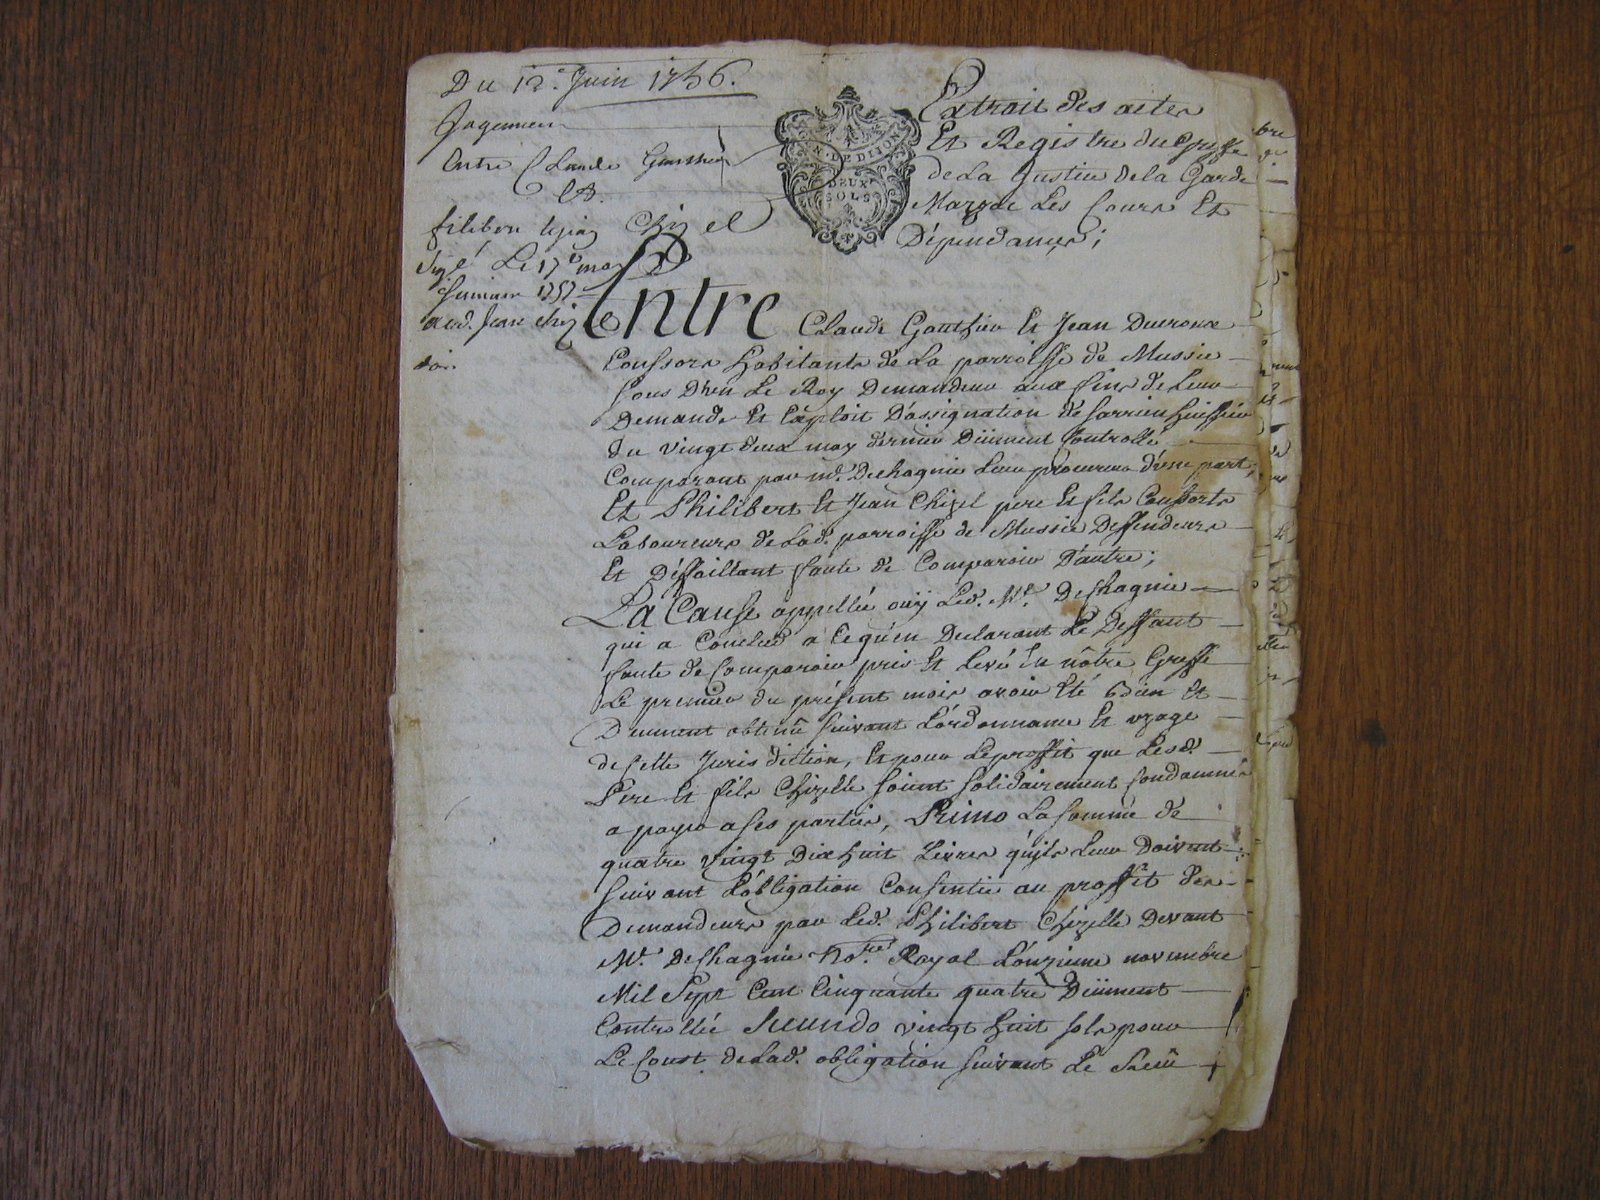 Du 12.e Juin 1756.
Jugement
Entre Claude Gauthier
Et
filibert
Chizel
Le 17e may
1757
Jean
GEN. DE DIJON
DEUX
SOLS
Extrait des actes
Et Registre du Greffe
de La Justice de la Garde
Les Cours Et
Dépendances;
Entre Claude Gauthier Et Jean Ducroux
Consors habitants de La parroisse de Mussie
sous Dhun Le Roy Demandeur aux fins de Leur
Demande Et Exploit D'assignation de huissier
du vingt deux may dernier Düment Controllé
Comparant par md. Dechagnie Leur procureur d'une part;
Et Philibert Et Jean Chizel pere Et fils Consorts
Laboureurs de Lad. parroisse de Mussie Deffendeurs
Et Déffaillant faute de Comparoir D'autre;
La Cause appellée ouÿ Led. Mt. Dechagnie
qui a Conclud a Ce qu'en Declarant Le Deffaut
faute de Comparoir pris Et Levé En nôtre Greffe
Le premier du présent mois avoir Eté Bien Et
Duement obtenû suivant L'ordonnance Et uzage
de Cette Jurisdiction, Et pour Le proffit que Lesd.
Pere Et fils Chizelle soient solidairement Condamnés
a payer a ses parties, Primo La somme de
quatre vingt Dix huit Livres qu'ils Leur doivent
suivant L'obligation Consentie au proffit des
Demandeurs par Led. Philibert Chizelle Devant
Mt. Dechagnie No.re Royal L'onzieme novembre
Mil Sept Cent Cinquante quatre Düment
Controllée Secundo vingt huit sols pour
Le Coust de Lad. obligation suivant Le